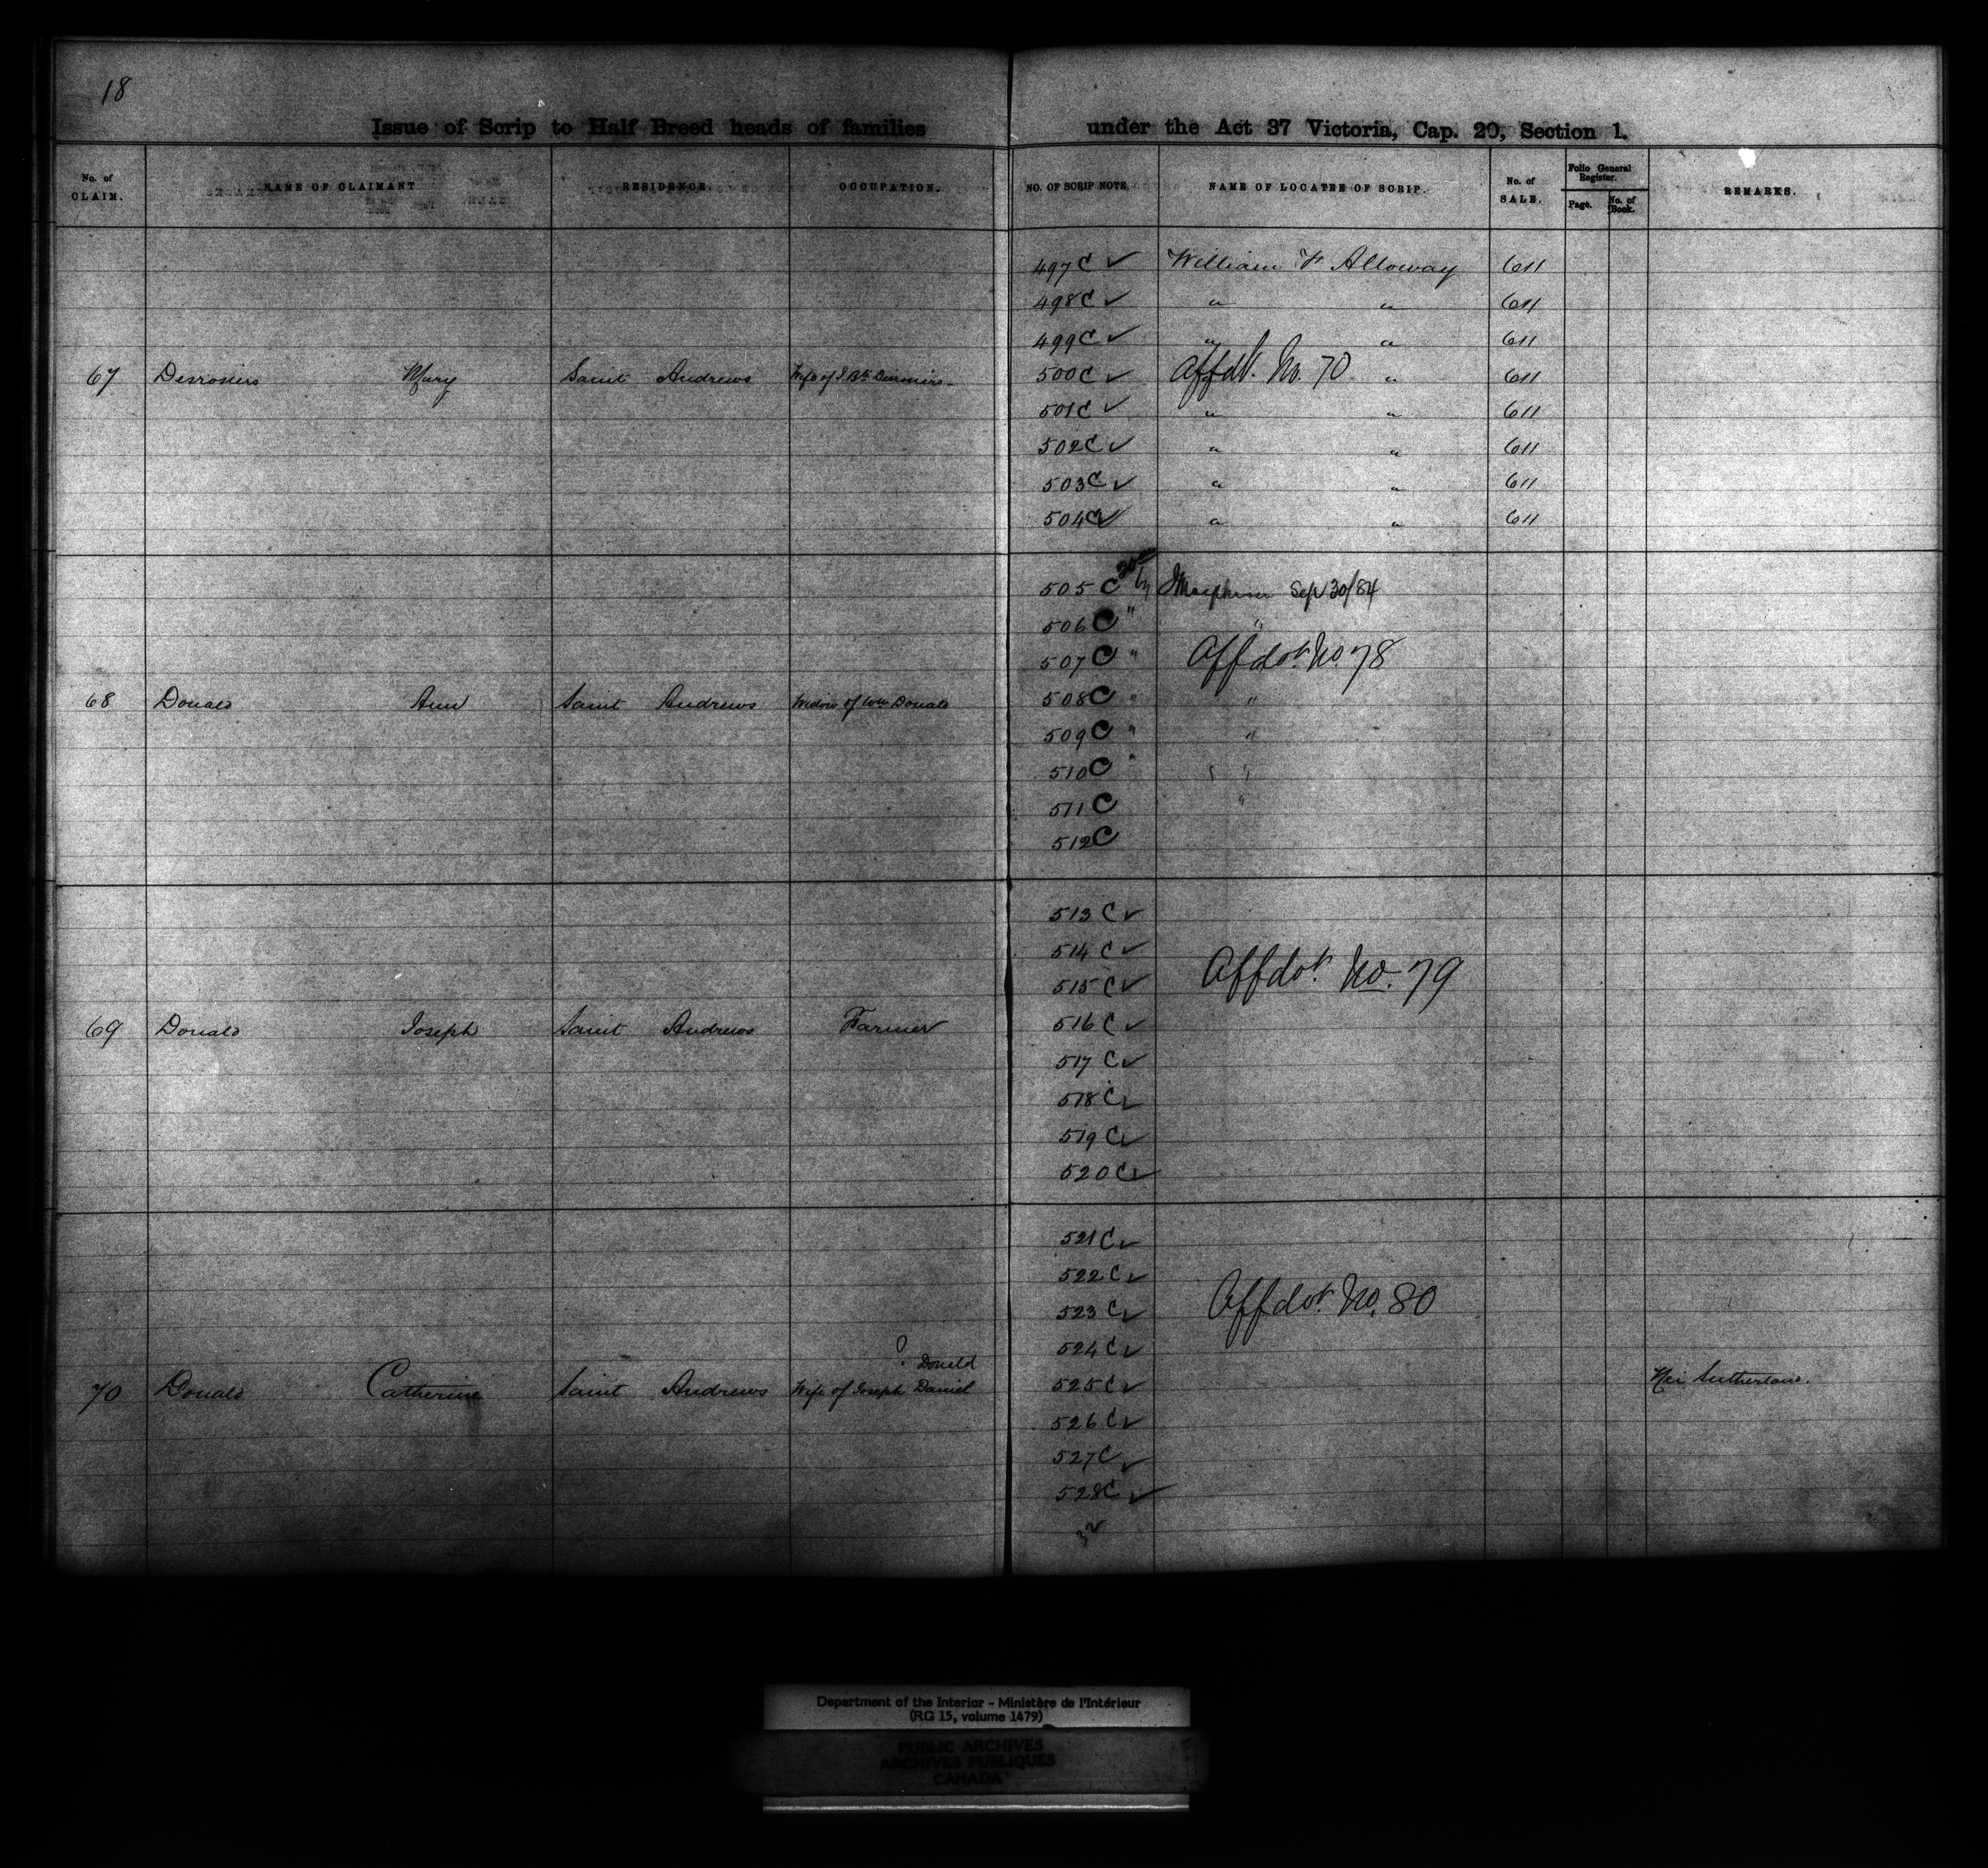 18
Issue of Scrip to Half Breed heads of families under the Act 37 Victoria, Cap. 20, Section 1.
No. of CLAIM. NAME OF CLAIMANT RESIDENCE. OCCUPATION. NO. OF SCRIP NOTE NAME OF LOCATEE OF SCRIP. No. of SALE. Folio General Register. Page. No. of Book. REMARKS.
497 C ✓ William F Alloway 611
498 C ✓ " " 611
499 C ✓ " " 611
67 Desrosiers Mary Saint Andrews Wife of J Bte Desrosiers 500 C ✓ Affdt. No. 70 " 611
501 C ✓ " " 611
502 C ✓ " " 611
503 C ✓ " " 611
504 C ✓ " " 611
505 C Sep 30/84
506 C " "
507 C " Affdvt No. 78
68 Donald Ann Saint Andrews Widow of Wm Donald 508 C " "
509 C " "
510 C "
511 C "
512 C
513 C ✓
514 C ✓
515 C ✓ Affdvt No. 79
69 Donald Joseph Saint Andrews Farmer 516 C ✓
517 C ✓
518 C ✓
519 C ✓
520 C ✓
521 C ✓
522 C ✓
523 C ✓ Affdvt No. 80
524 C ✓
? Donald
70 Donald Catherine Saint Andrews Wife of Joseph Daniel 525 C ✓ Née Sutherland.
526 C ✓
527 C ✓
528 C ✓
Department of the Interior - Ministère de l'Intérieur
(RG 15, volume 1479)
PUBLIC ARCHIVES
ARCHIVES PUBLIQUES
CANADA